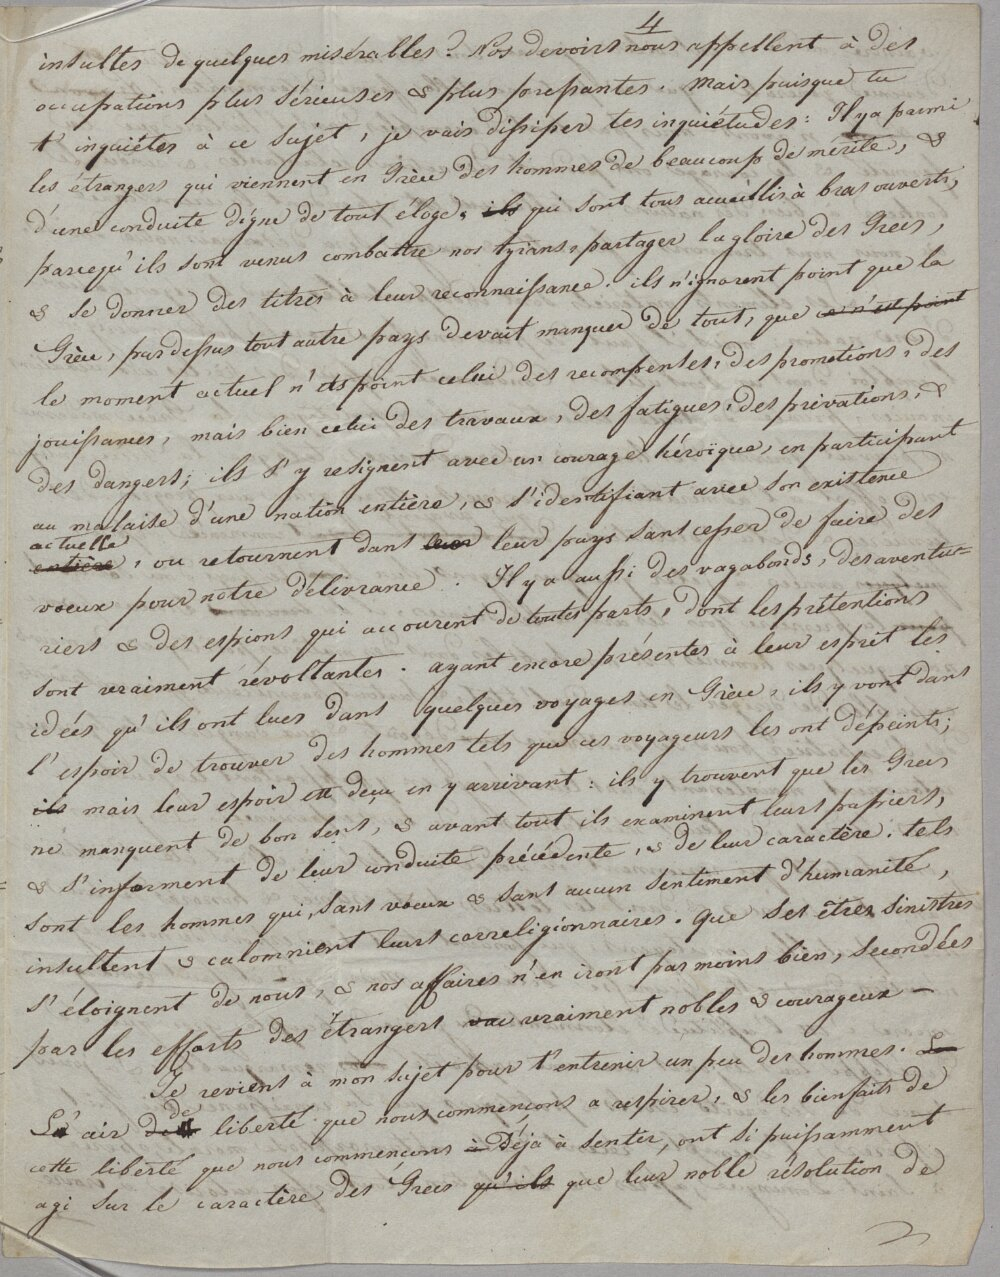 4
insultes de quelques misérables? Nos devoirs nous appellent à des
occupations plus sérieuses & plus pressantes. Mais puisque tu
t'inquiétes à ce sujet, je vais dissiper tes inquiétudes: Il y a parmi
les étrangers qui viennent en Grèce des hommes de beaucoup de mérite, &
d'une conduite digne de tout éloge, ils qui sont tous accueillis à bras ouverts,
parcequ'ils sont venus combattre nos tyrans, partager la gloire des Grecs,
& se donner des titres à leur reconnaissance. ils n'ignorent point que la
Grèce, pardessus tout autre pays devait manquer de tout, que ce n'est point
le moment actuel n'est point celui des recompenses, des promotions, des
jouissances, mais bien celui des travaux, des fatigues, des privations, &
des dangers; ils s'y resignent avec un courage héroïque, en participant
au malaise d'une nation entière, & s'identifiant avec son existence
actuelle
entière, ou retournent dans leur leur pays sans cesser de faire des
voeux pour notre délivrance. Il y a aussi des vagabonds, des aventu-
riers & des espions qui accourent de toutes parts, dont les prétentions
sont vraiment révoltantes. ayant encore présentes à leur esprit les
idées qu'ils ont lues dans quelques voyages en Grèce, ils y vont dans
l'espoir de trouver des hommes tels que ces voyageurs les ont dépeints;
ils mais leur espoir est deçu en y arrivant: ils y trouvent que les Grecs
ne manquent de bon sens, & avant tout ils examinent leurs papiers,
& s'informent de leur conduite précédente, & de leur caractère. tels
sont les hommes qui, sans voeux & sans aucun sentiment d'humanité,
insultent & calomnient leurs correligionnaires. que ses êtres sinistres
s'éloignent de nous, & nos affaires n'en iront pas moins bien, secondées
par les efforts des étrangers vraiment nobles & courageux –
Je reviens à mon sujet pour t'entrenir un peu des hommes. Le
de
L'air des liberté que nous commençons a respirer, & les bienfaits de
cette liberté que nous commençons à Déjà à sentir, ont si puissamment
agi sur le caractère des Grecs qu'ils que leur noble résolution de